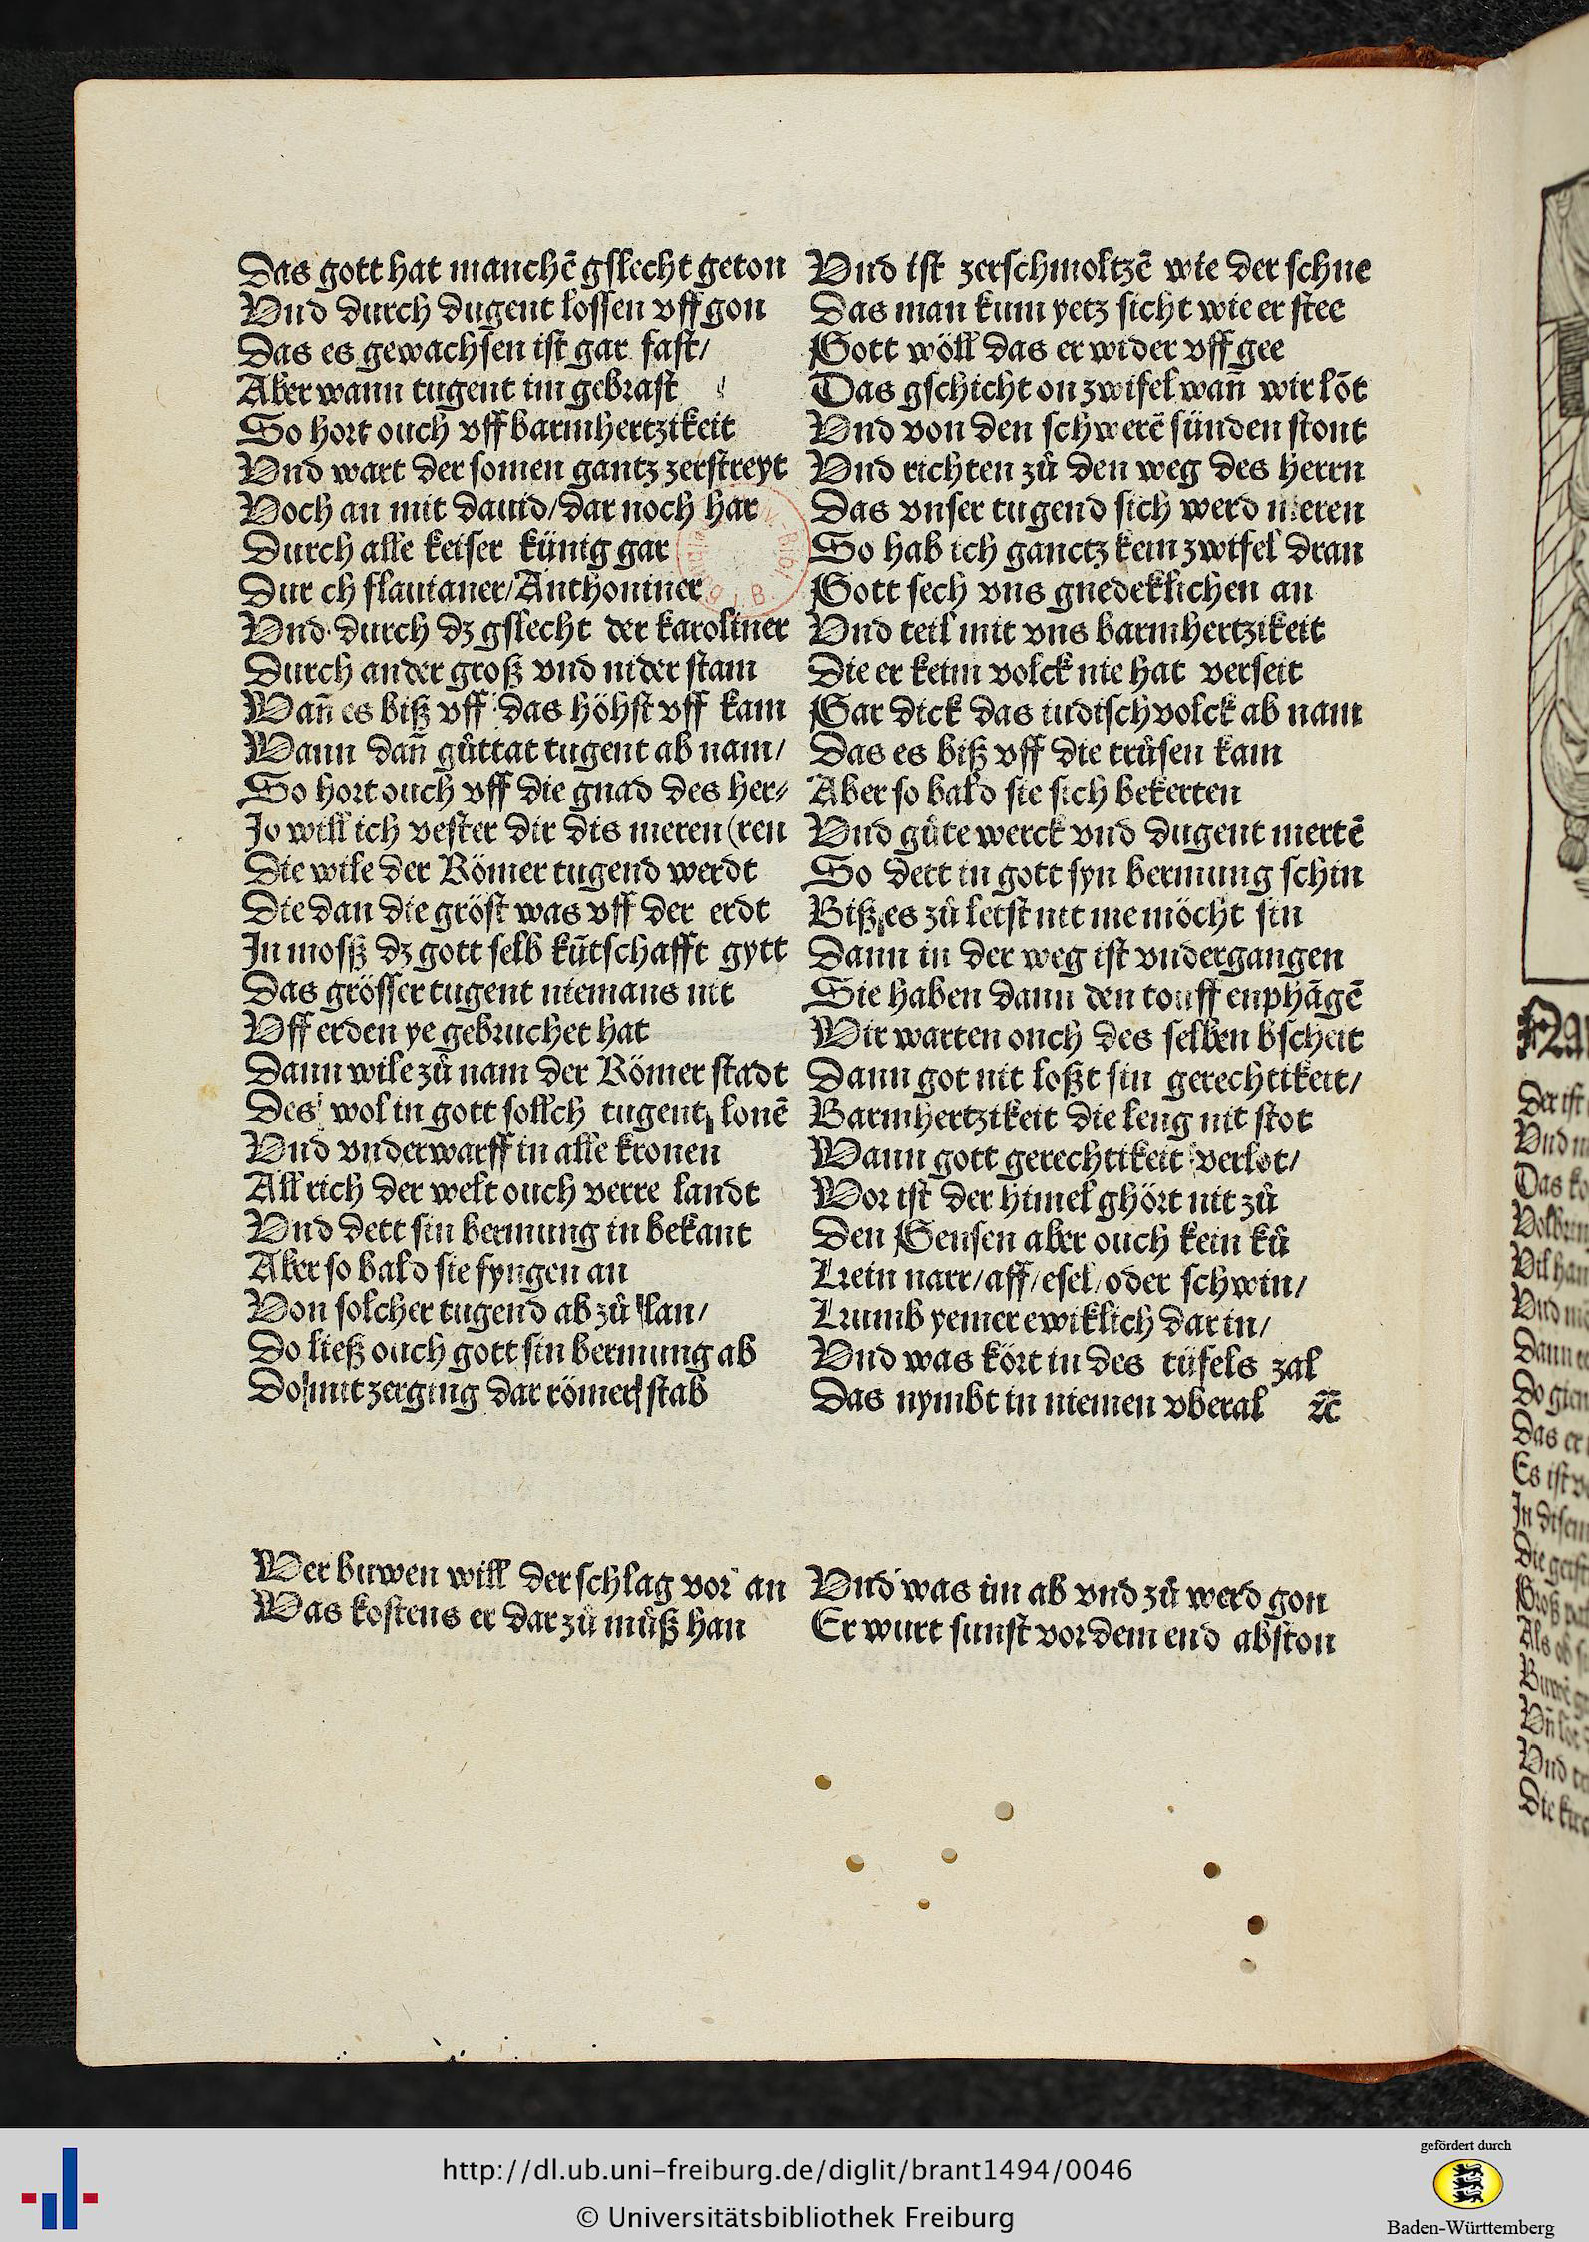 Das gott hat manchē gslecht geton
Vnd durch dugent lossen vff gon
Das es gewachsen ist gar fast/
Aber wann tugent im gebrast
So hort ouch vff barmhertzikeit
Vnd wart der somen gantz zerstreyt
Noch an mit dauid/dar noch har
Durch alle keiser künig gar
Dur ch flauianer/Anthoniner
Vnd durch dz gslecht der karoliner
Durch ander groß vnd nider stam
Wañ es biß vff das höhst vff kam
Wann dañ gůttat tugent ab nam/
So hort ouch vff die gnad des her⸗
Jo will ich vester dir dis meren (ren
Die wile der Römer tugend werdt
Die dan die gröst was vff der erdt
In mosß dz gott selb kūtschafft gytt
Das grösser tugent niemans nit
Vff erden ye gebruchet hat
Dann wile zů nam der Römer stadt
Des wol in gott sollch tugent lonē
Vnd vnderwarff in alle kronen
All rich der welt ouch verre landt
Vnd dett sin bermung in bekant
Aber so bald sie fyngen an
Von solcher tugend ab zů lan/
Do ließ ouch gott sin bermung ab
Do mit zerging dar römer stab
Vnd ist zerschmoltzē wie der schne
Das man kum yetz sicht wie er stee
Gott wöll das er wider vff gee
Das gschicht on zwifel wañ wir lōt
Vnd von den schwerē sünden stont
Vnd richten zů den weg des herrn
Das vnser tugend sich werd meren
So hab ich ganctz kein zwifel dran
Gott sech vns gnedeklichen an
Vnd teil mit vns barmhertzikeit
Die er keim volck nie hat verseit
Gar dick das iudisch volck ab nam
Das es biß vff die trůsen kam
Aber so bald sie sich bekerten
Vnd gůte werck vnd dugent mertē
So dett in gott syn bermung schin
Biß es zů letst nit me möcht sin
Dann in der weg ist vndergangen
Sie haben dann den touff enphāgē
Wir warten ouch des selben bscheit
Dann got nit loßt sin gerechtikeit/
Barmhertzikeit die leng nit stot
Wann gott gerechtikeit verlot/
Wor ist der himel ghört nit zů
Den Gensen aber ouch kein ků
Kein narr/aff/esel/oder schwin/
Kumb yemer ewiklich dar in/
Vnd was kört in des tüfels zal
Das nymbt in niemen vberal ⁊c̄
Wer buwen will der schlag vor an
Was kostens er dar zů můß han
Vnd was im ab vnd zů werd gon
Er wurt sunst vor dem end abston
http://dl.ub.uni-freiburg.de/diglit/brant1494/0046
© Universitätsbibliothek Freiburg
gefördert durch
Baden-Württemberg